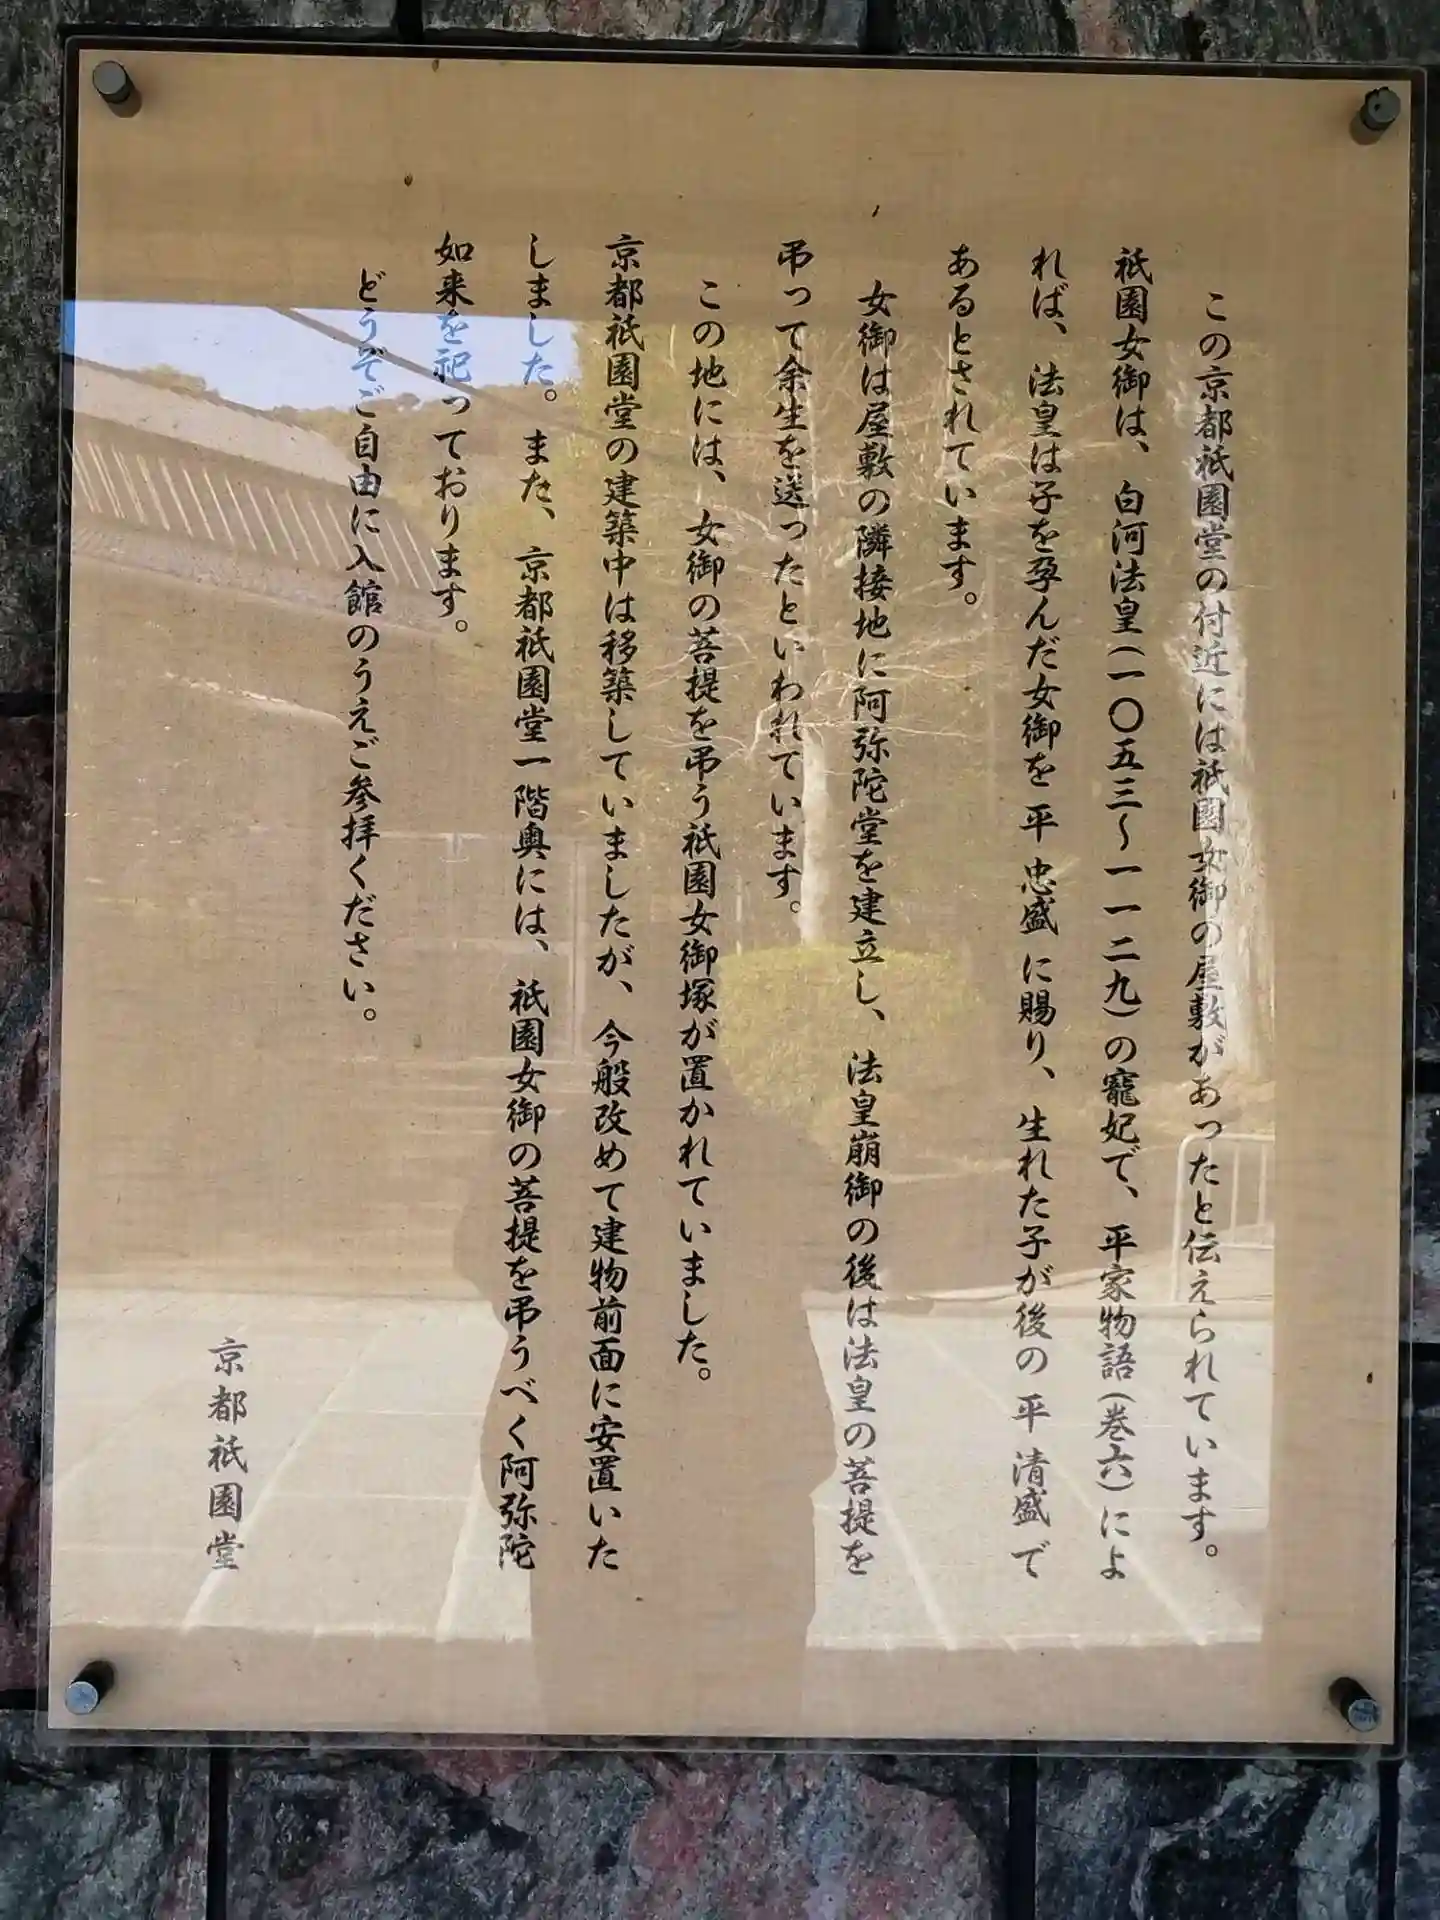 この京都祇園堂の付近には祇園女御の屋敷があったと伝えられています。
祇園女御は、白河法皇（一〇五三〜一一二九）の寵妃で、平家物語（巻六）によ
れば、法皇は子を孕んだ女御を平忠盛に賜り、生れた子が後の平清盛で
あるとされています。
女御は屋敷の隣接地に阿弥陀堂を建立し、法皇崩御の後は法皇の菩提を
弔って余生を送ったといわれています。
この地には、女御の菩提を弔う祇園女御塚が置かれていました。
京都祇園堂の建築中は移築していましたが、今般改めて建物前面に安置いた
しました。また、京都祇園堂一階奥には、祇園女御の菩提を弔うべく阿弥陀
如来を祀っております。
どうぞご自由に入館のうえご参拝ください。
京都祇園堂